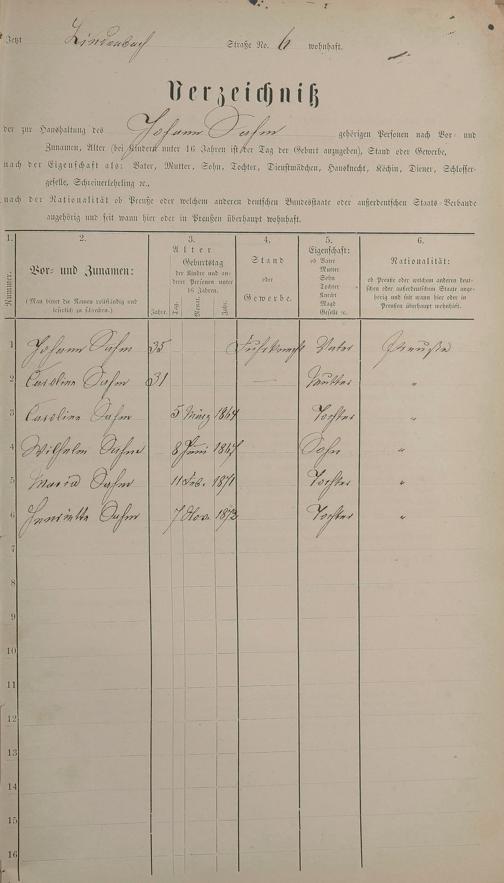 Jetzt Lindenbach Straße No. 6 wohnhaft.
Verzeichniß
der zur Haushaltung des Johann Sahm gehörigen Personen nach Vor- und
Zunamen, Alter (bei Kindern unter 16 Jahren ist der Tag der Geburt anzugeben), Stand oder Gewerbe,
nach der Eigenschaft als: Vater, Mutter, Sohn, Tochter, Dienstmädchen, Hausknecht, Köchin, Diener, Schlosser-
geselle, Schreinerlehrling ꝛc.,
nach der Nationalität ob Preuße oder welchem anderen deutschen Bundesstaate oder außerdeutschen Staats-Verbande
angehörig und seit wann hier oder in Preußen überhaupt wohnhaft.
1. 2. 3. 4. 5. 6.
Nummer.
Vor- und Zunamen:
(Man bittet die Namen vollständig und
leserlich zu schreiben.)
Alter
Geburtstag
der Kinder und an-
derer Personen unter
16 Jahren.
Jahre. Tag. Monat. Jahr.
Stand
oder
Gewerbe.
Eigenschaft:
ob Vater
Mutter
Sohn
Tochter
Knecht
Magd
Geselle ꝛc.
Nationalität:
ob Preuße oder welchem anderen deut-
schen oder außerdeutschen Staate ange-
hörig und seit wann hier oder in
Preußen überhaupt wohnhaft.
1 Johann Sahm 35 Fuhrknecht Vater Preuße
2 Caroline Sahm 31 — Mutter "
3 Caroline Sahm 5 März 1864 Tochter "
4 Wilhelm Sahm 8 Juni 1867 Sohn "
5 Maria Sahm 11 Feb. 1871 Tochter "
6 Henriette Sahm 7 Nov. 1872 Tochter "
7
8
9
10
11
12
13
14
15
16